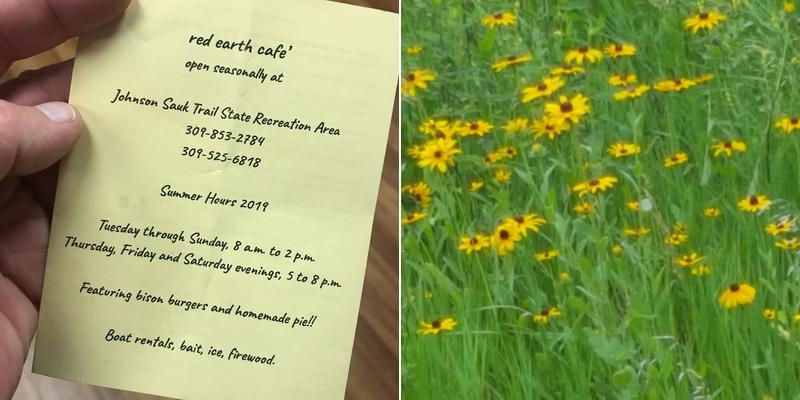 red earth cafe'
open seasonally at
Johnson Sauk Trail State Recreation Area
309-853-2784
309-525-6818
Summer Hours 2019
Tuesday through Sunday, 8 a.m. to 2 p.m.
Thursday, Friday and Saturday evenings, 5 to 8 p.m.
Featuring bison burgers and homemade pie!!
Boat rentals, bait, ice, firewood.